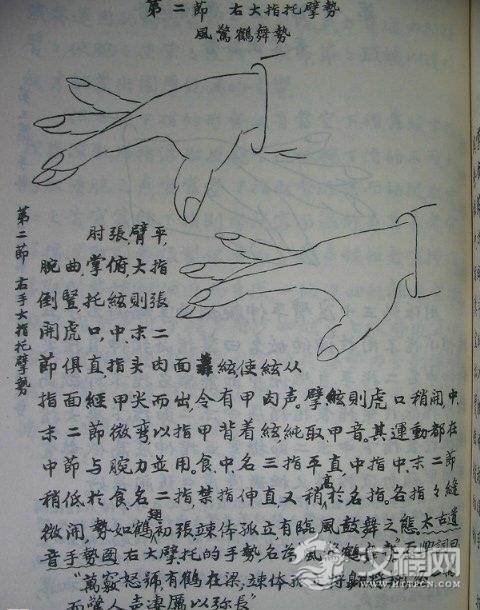 第二節 右大指托擘勢
風驚鶴舞勢
第二節 右手大指托擘勢
肘張,臂平,
腕曲,掌俯,大指
倒豎,托絃則張
開虎口,中.末二
節俱直,指头肉面 絃使絃从
指面經甲尖而出,令有甲肉声.擘絃則虎口稍闭,中.
末二節微彎以指甲背着絃純取甲音.其運動都在
中節与腕力並用.食.中.名三指平直,中指中.末二節
稍低於食名二指,禁指伸直又稍高於名指.各指々縫
微闭,勢如鶴翅初張竦体孤立,有臨風鼓舞之態.太古遺
音手勢圖右大擘托的手勢名為"風驚鶴舞
"萬竅怒號,有鶴在梁,竦体孤立
而驚人声凄厲以弥長"
文程网